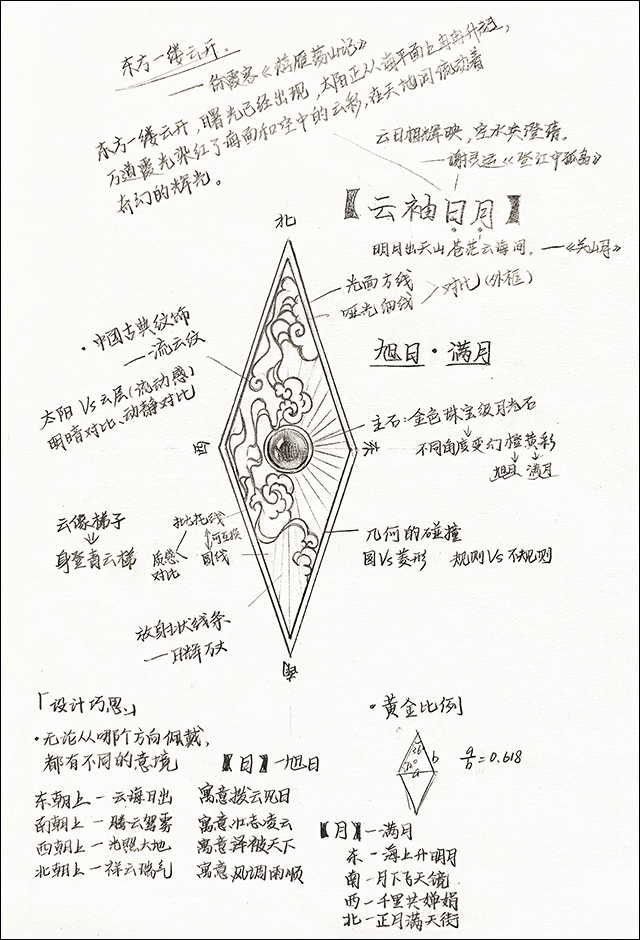 东方一缕云开。
——徐霞客《游雁荡山记》
东方一缕云开,曙光已经出现,太阳正从海平面上冉冉升起,
万道霞光染红了海面和空中的云彩,在天地间流动着
奇幻的辉光。
云日相辉映,空水共澄清。
——谢灵运《登江中孤岛》
【云袖日月】
明月出天山 苍茫云海间。——《关山月》
北
光面方线
哑光细线
对比(外框)
·中国古典纹饰
——流云纹
旭日·满月
太阳 Vs 云层(流动感)
明暗对比、动静对比
主石:金色珠宝级月光石
不同角度变幻橙黄彩
旭日 满月
西
东
云像梯子
身登青云梯
扭花线
可互换
质感
对比
圆线
几何的碰撞
圆Vs菱形 规则Vs不规则
放射状线条
——日辉万丈
南
「设计巧思」
·无论从哪个方向佩戴,
都有不同的意境
【日】—旭日
东朝上—云海日出 寓意拨云见日
南朝上—腾云驾雾 寓意壮志凌云
西朝上—光照大地 寓意泽被天下
北朝上—祥云瑞气 寓意风调雨顺
·黄金比例
b
a
a/b=0.618
【月】—满月
东—海上升明月
南—月下飞天镜
西—千里共婵娟
北—正月满天街